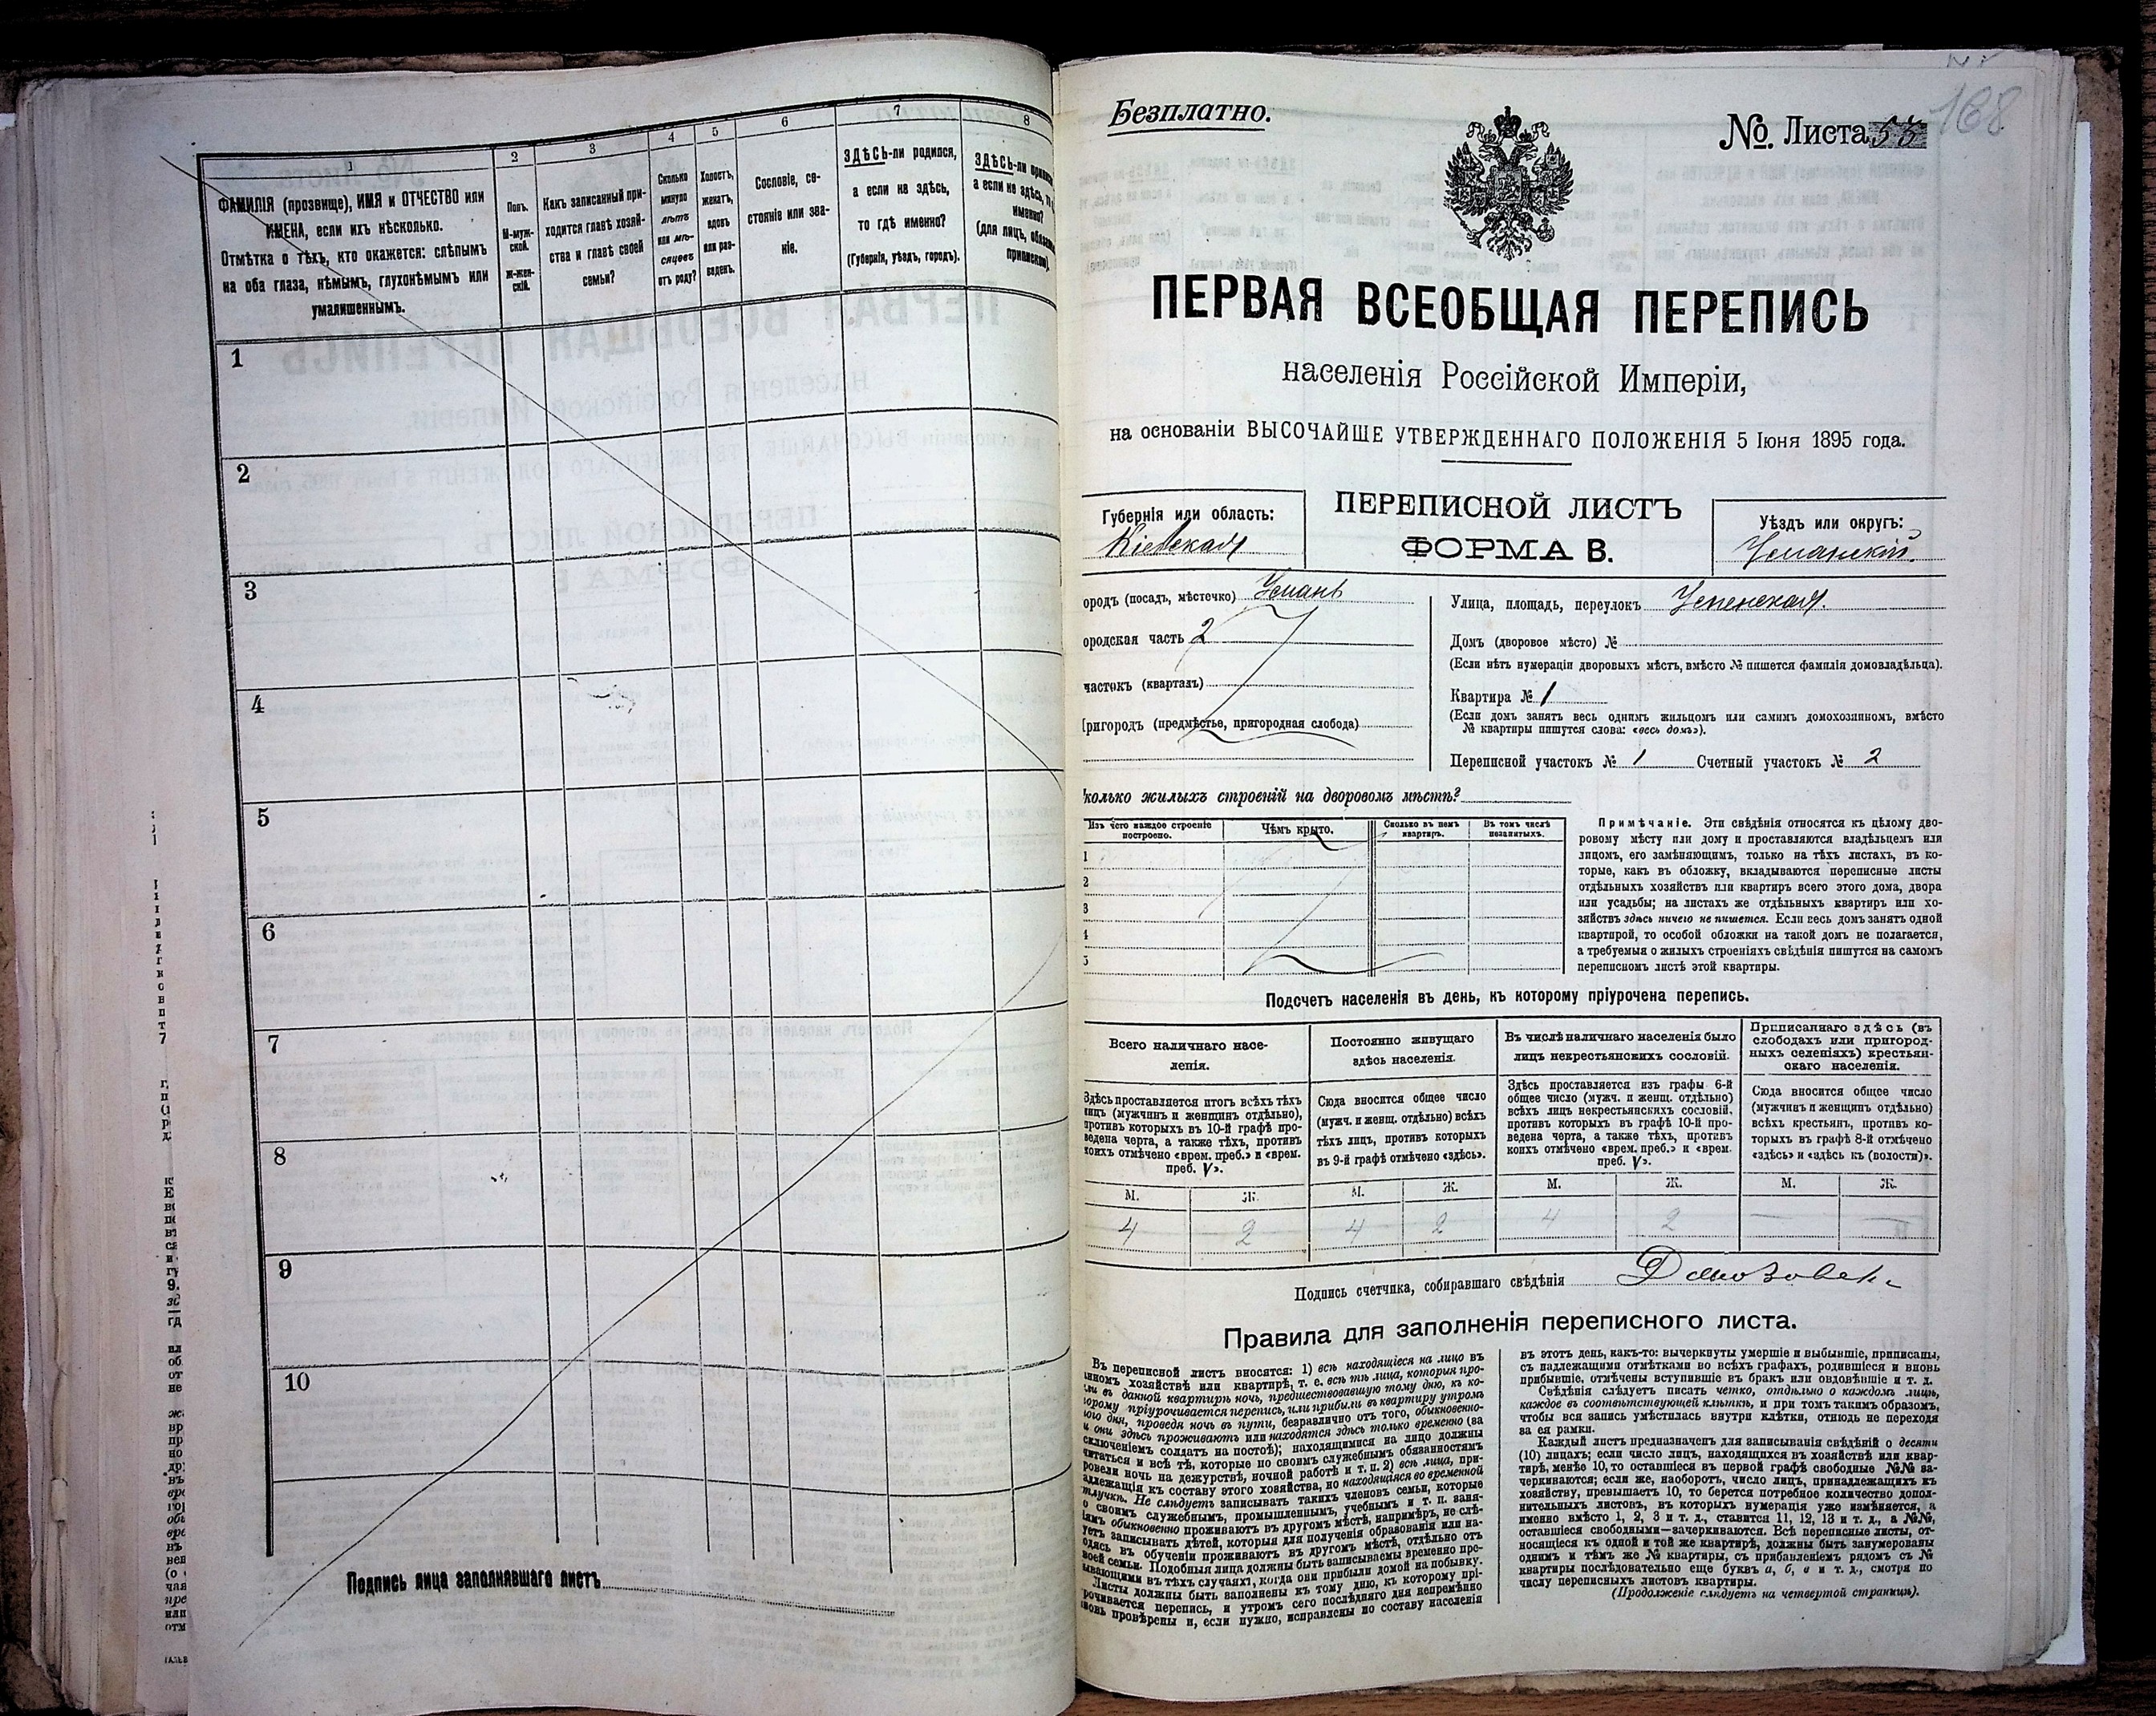 1
2
3
4
5
6
7
8
ФАМИЛІЯ (прозвище), ИМЯ и ОТЧЕСТВО или
ИМЕНА, если ихъ нѣсколько.
Отмѣтка о тѣхъ, кто окажется: слѣпымъ
на оба глаза, нѣмымъ, глухонѣмымъ или
умалишеннымъ.
Полъ.
М-муж-
ской.
Ж-жен-
скій.
Какъ записанный при-
ходится главѣ хозяй-
ства и главѣ своей
семьи?
Сколько
минуло
лѣтъ
или мѣ-
сяцевъ
отъ роду?
Холостъ,
женатъ,
вдовъ
или раз-
веденъ.
Сословіе, со-
стояніе или зва-
ніе.
ЗДѢСЬ-ли родился,
а если не здѣсь,
то гдѣ именно?
(Губернія, уѣздъ, городъ).
ЗДѢСЬ-ли
а если не здѣсь,
именно?
(для лицъ,
1
2
3
4
5
6
7
8
9
10
Подпись лица заполнявшаго листъ
Безплатно.
№. Листа 53
168
ПЕРВАЯ ВСЕОБЩАЯ ПЕРЕПИСЬ
населенія Россійской Имперіи,
на основаніи ВЫСОЧАЙШЕ УТВЕРЖДЕННАГО ПОЛОЖЕНІЯ 5 Іюня 1895 года.
Губернія или область:
Кіевская
ПЕРЕПИСНОЙ ЛИСТЪ
ФОРМА В.
Уѣздъ или округъ:
Уманскій
ородъ (посадъ, мѣстечко) Умань
ородская часть 2
частокъ (кварталъ)
ригородъ (предмѣстье, пригородная слобода)
Улица, площадь, переулокъ Успенская.
Домъ (дворовое мѣсто) №
(Если нѣтъ нумераціи дворовыхъ мѣстъ, вмѣсто № пишется фамилія домовладѣльца).
Квартира № 1
(Если домъ занятъ весь однимъ жильцомъ или самимъ домохозяиномъ, вмѣсто
№ квартиры пишутся слова: «весь домъ»).
Переписной участокъ № 1 Счетный участокъ № 2
колько жилыхъ строеній на дворовомъ мѣстѣ?
Изъ чего каждое строеніе
построено.
Чѣмъ крыто.
Сколько въ немъ
квартиръ.
Въ томъ числѣ
незанятыхъ.
1
2
3
4
5
Примѣчаніе. Эти свѣдѣнія относятся къ цѣлому дво-
ровому мѣсту или дому и проставляются владѣльцемъ или
лицомъ, его замѣняющимъ, только на тѣхъ листахъ, въ ко-
торые, какъ въ обложку, вкладываются переписные листы
отдѣльныхъ хозяйствъ или квартиръ всего этого дома, двора
или усадьбы; на листахъ же отдѣльныхъ квартиръ или хо-
зяйствъ здѣсь ничего не пишется. Если весь домъ занятъ одной
квартирой, то особой обложки на такой домъ не полагается,
а требуемыя о жилыхъ строеніяхъ свѣдѣнія пишутся на самомъ
переписномъ листѣ этой квартиры.
Подсчетъ населенія въ день, къ которому пріурочена перепись.
Всего наличнаго насе-
ленія.
Здѣсь проставляется итогъ всѣхъ тѣхъ
лицъ (мужчинъ и женщинъ отдѣльно),
противъ которыхъ въ 10-й графѣ про-
ведена черта, а также тѣхъ, противъ
коихъ отмѣчено «врем. преб.» и «врем.
преб. V».
Постоянно живущаго
здѣсь населенія.
Сюда вносится общее число
(мужч. и женщ. отдѣльно) всѣхъ
тѣхъ лицъ, противъ которыхъ
въ 9-й графѣ отмѣчено «здѣсь».
Въ числѣ наличнаго населенія было
лицъ некрестьянскихъ сословій.
Здѣсь проставляется изъ графы 6-й
общее число (мужч. и женщ. отдѣльно)
всѣхъ лицъ некрестьянскихъ сословій,
противъ которыхъ въ графѣ 10-й про-
ведена черта, а также тѣхъ, противъ
коихъ отмѣчено «врем. преб.» и «врем.
преб. V».
Приписаннаго здѣсь (въ
слободахъ или пригород-
ныхъ селеніяхъ) крестьян-
скаго населенія.
Сюда вносится общее число
(мужчинъ и женщинъ отдѣльно)
всѣхъ крестьянъ, противъ ко-
торыхъ въ графѣ 8-й отмѣчено
«здѣсь» и «здѣсь къ (волости)».
М. Ж. М. Ж. М. Ж. М. Ж.
4 2 4 2 4 2 — —
Подпись счетчика, собиравшаго свѣдѣнія
Правила для заполненія переписного листа.
Въ переписной листъ вносятся: 1) всѣ находящіеся на лицо въ
нномъ хозяйствѣ или квартирѣ, т. е. всѣ тѣ лица, которыя про-
ли въ данной квартирѣ ночь, предшествовавшую тому дню, къ ко-
орому пріурочивается перепись, или прибыли въ квартиру утромъ
ого дня, проведя ночь въ пути, безразлично отъ того, обыкновенно-
и они здѣсь проживаютъ или находятся здѣсь только временно (за
сключеніемъ солдатъ на постоѣ); находящимися на лицо должны
читаться и всѣ тѣ, которые по своимъ служебнымъ обязанностямъ
ровели ночь на дежурствѣ, ночной работѣ и т. п. 2) всѣ лица, при-
адлежащія къ составу этого хозяйства, но находящіяся во временной
тлучкѣ. Не слѣдуетъ записывать такихъ членовъ семьи, которые
о своимъ служебнымъ, промышленнымъ, учебнымъ и т. п. заня-
іямъ обыкновенно проживаютъ въ другомъ мѣстѣ, напримѣръ, не слѣ-
уетъ записывать дѣтей, которыя для полученія образованія или на-
одясь въ обученіи проживаютъ въ другомъ мѣстѣ, отдѣльно отъ
воей семьи. Подобныя лица должны быть записываемы временно пре-
ывающими въ тѣхъ случаяхъ, когда они прибыли домой на побывку.
Листы должны быть заполнены къ тому дню, къ которому прі-
рочивается перепись, и утромъ сего послѣдняго дня непремѣнно
новь провѣрены и, если нужно, исправлены по составу населенія
въ этотъ день, какъ-то: вычеркнуты умершіе и выбывшіе, приписаны,
съ надлежащими отмѣтками во всѣхъ графахъ, родившіеся и вновь
прибывшіе, отмѣчены вступившіе въ бракъ или овдовѣвшіе и т. д.
Свѣдѣнія слѣдуетъ писать четко, отдѣльно о каждомъ лицѣ,
каждое въ соотвѣтствующей клѣткѣ, и при томъ такимъ образомъ,
чтобы вся запись умѣстилась внутри клѣтки, отнюдь не переходя
за ея рамки.
Каждый листъ предназначенъ для записыванія свѣдѣній о десяти
(10) лицахъ; если число лицъ, находящихся въ хозяйствѣ или квар-
тирѣ, менѣе 10, то оставшіеся въ первой графѣ свободные №№ за-
черкиваются; если же, наоборотъ, число лицъ, принадлежащихъ къ
хозяйству, превышаетъ 10, то берется потребное количество допол-
нительныхъ листовъ, въ которыхъ нумерація уже измѣняется, а
именно вмѣсто 1, 2, 3 и т. д., ставится 11, 12, 13 и т. д., а №№,
оставшіеся свободными—зачеркиваются. Всѣ переписные листы, от-
носящіеся къ одной и той же квартирѣ, должны быть занумерованы
однимъ и тѣмъ же № квартиры, съ прибавленіемъ рядомъ съ №
квартиры послѣдовательно еще буквъ а, б, в и т. д., смотря по
числу переписныхъ листовъ квартиры.
(Продолженіе слѣдуетъ на четвертой страницѣ).